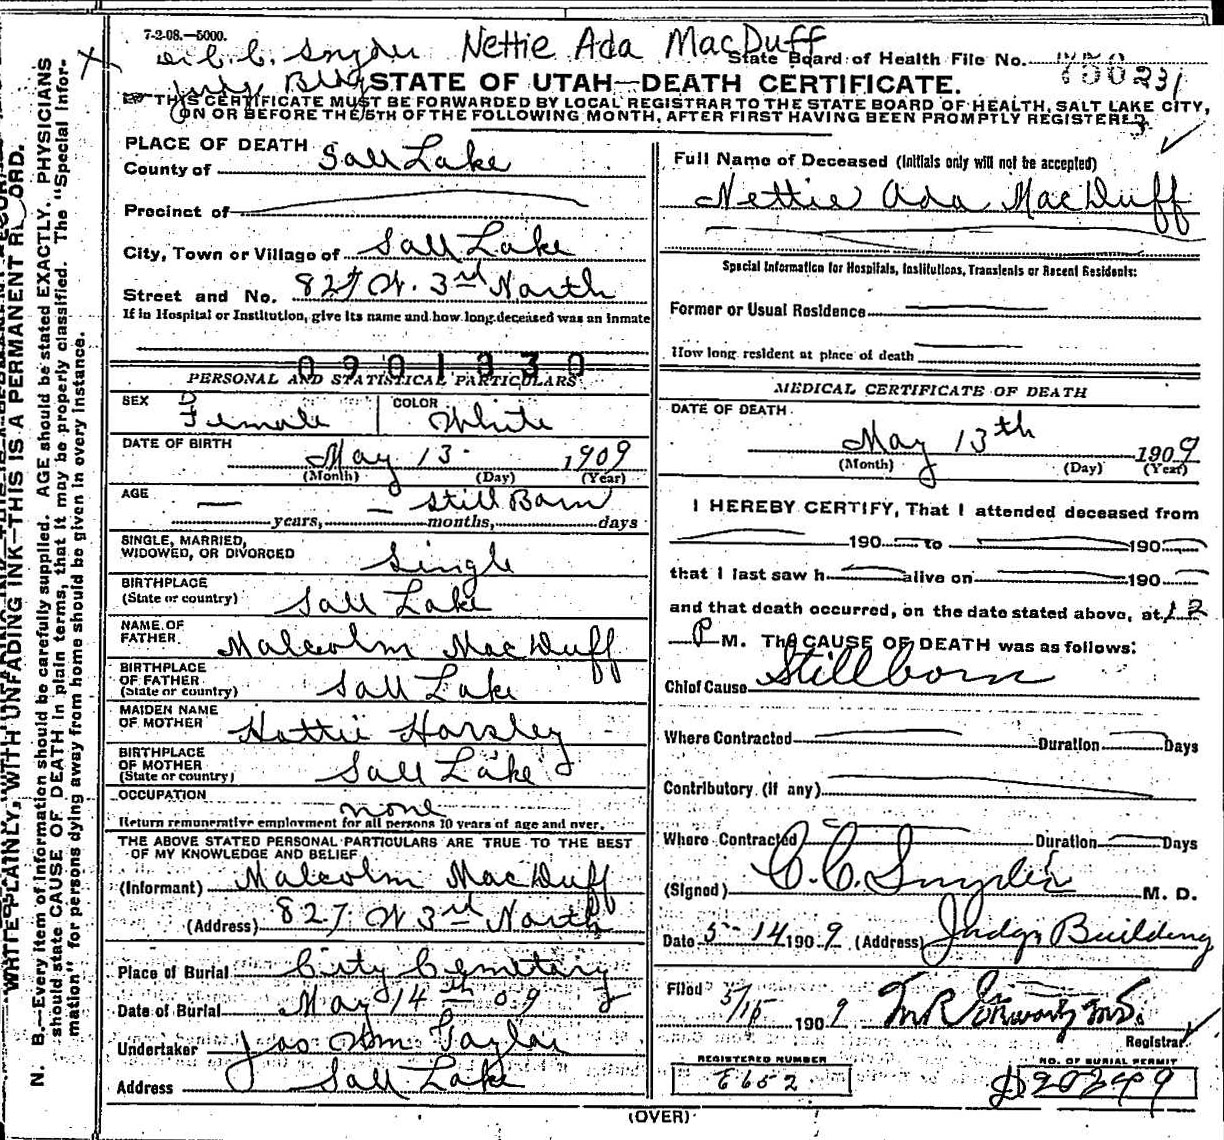 7-2-08.—5000.
Nettie Ada MacDuff
Dr C. C. Snyder
Judge Bldg
State Board of Health File No. 231
STATE OF UTAH—DEATH CERTIFICATE.
THIS CERTIFICATE MUST BE FORWARDED BY LOCAL REGISTRAR TO THE STATE BOARD OF HEALTH, SALT LAKE CITY,
ON OR BEFORE THE 5TH OF THE FOLLOWING MONTH, AFTER FIRST HAVING BEEN PROMPTLY REGISTERED.
WRITE PLAINLY, WITH UNFADING INK—THIS IS A PERMANENT RECORD.
N. B.—Every item of information should be carefully supplied. AGE should be stated EXACTLY. PHYSICIANS
should state CAUSE OF DEATH in plain terms, that it may be properly classified. The "Special Infor-
mation" for persons dying away from home should be given in every instance.
PLACE OF DEATH
County of Salt Lake
Precinct of
City, Town or Village of Salt Lake
Street and No. 827 W. 3rd North
If in Hospital or Institution, give its name and how long deceased was an inmate
0901930
PERSONAL AND STATISTICAL PARTICULARS
SEX Female COLOR White
DATE OF BIRTH
May 13 1909
(Month) (Day) (Year)
AGE
— — Still Born
years, months, days
SINGLE, MARRIED,
WIDOWED, OR DIVORCED Single
BIRTHPLACE
(State or country) Salt Lake
NAME OF
FATHER Malcolm MacDuff
BIRTHPLACE
OF FATHER
(State or country) Salt Lake
MAIDEN NAME
OF MOTHER Hattie Horsley
BIRTHPLACE
OF MOTHER
(State or country) Salt Lake
OCCUPATION
none
Return remunerative employment for all persons 10 years of age and over.
THE ABOVE STATED PERSONAL PARTICULARS ARE TRUE TO THE BEST
OF MY KNOWLEDGE AND BELIEF
(Informant) Malcolm MacDuff
(Address) 827. W 3rd North
Place of Burial City Cemetery
Date of Burial May 14th 09
Undertaker Jos Wm Taylor
Address Salt Lake
Full Name of Deceased (Initials only will not be accepted)
Nettie Ada MacDuff
Special Information for Hospitals, Institutions, Transients or Recent Residents:
Former or Usual Residence
How long resident at place of death
MEDICAL CERTIFICATE OF DEATH
DATE OF DEATH
May 13th 1909
(Month) (Day) (Year)
I HEREBY CERTIFY, That I attended deceased from
190 to 190
that I last saw h alive on 190
and that death occurred, on the date stated above, at 12
P M. The CAUSE OF DEATH was as follows:
Chief Cause Stillborn
Where Contracted Duration Days
Contributory (if any)
Where Contracted Duration Days
(Signed) C. C. Snyder M. D.
Date 5-14 1909 (Address) Judge Building
Filed 5/15 1909
Registrar
REGISTERED NUMBER
E652
NO. OF BURIAL PERMIT
D20249
(OVER)